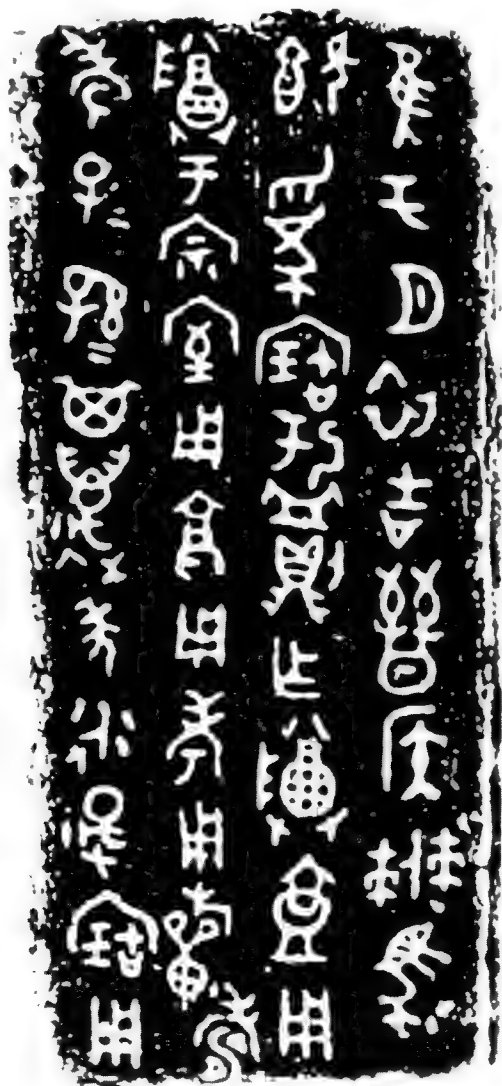 隹正月初吉晉侯僰馬
既為寶盂則作尊壺用
尊于宗室用享用考用祈壽
老子=孫=其萬年永是寶用